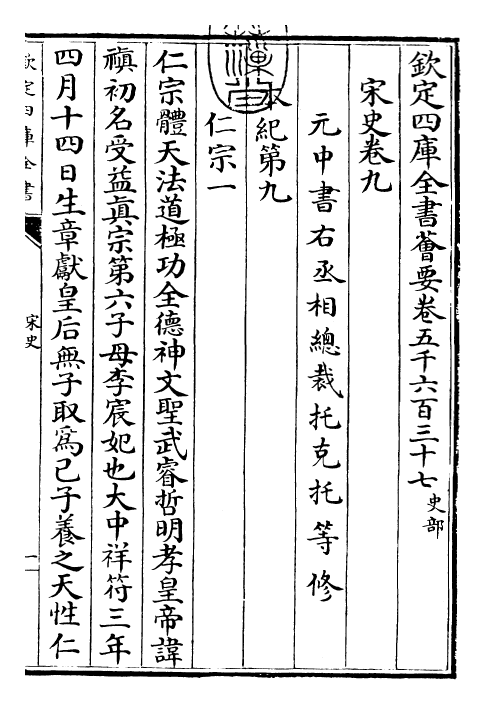 欽定四庫全書薈要卷五千六百三十七史部
宋史卷九
元中書右丞相總裁托克托等修
本紀第九
仁宗一
仁宗體天法道極功全德神文聖武睿哲明孝皇帝諱
禎初名受益真宗第六子母李宸妃也大中祥符三年
四月十四日生章獻皇后無子取為己子養之天性仁
欽定四庫全書
宋史
一